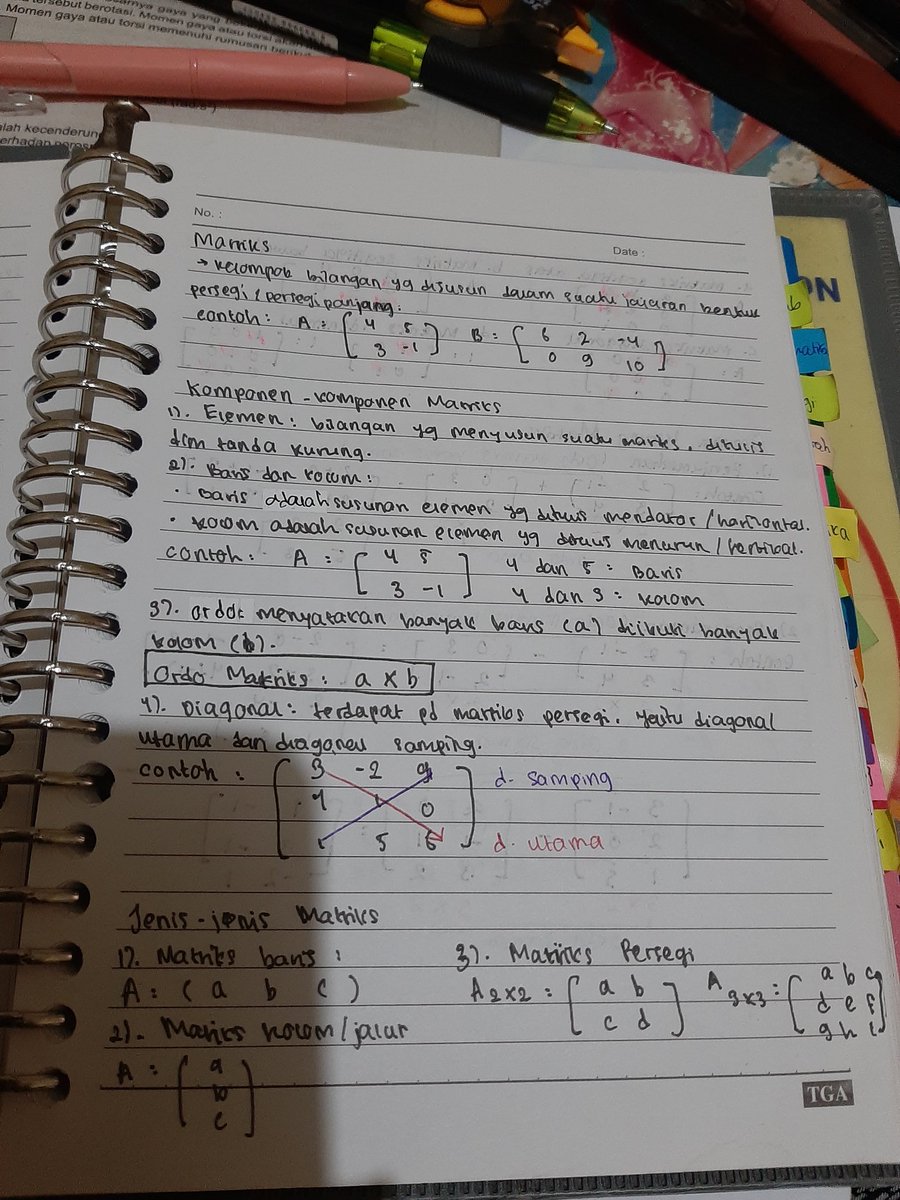 tersebut berotasi. Momen gaya atau torsi
Momen gaya atau torsi memenuhi rumusan
alah kecenderun
erhadap poros
No. :
Date :
Matriks
→ Kelompok bilangan yg disusun dalam suatu jajaran bentuk
persegi / persegi panjang.
contoh : A = [ 4 5 B = [ 6 2 -4
3 -1 ] 0 9 10 ]
Komponen - komponen Matriks
1). Elemen : bilangan yg menyusun suatu matriks. ditulis
dlm tanda kurung.
2). Baris dan kolom :
• Baris adalah susunan elemen yg ditulis mendatar / horizontal.
• kolom adalah susunan elemen yg ditulis menurun / vertikal.
contoh : A = [ 4 5 4 dan 5 = Baris
3 -1 ] 4 dan 3 = kolom
3). Ordo: menyatakan banyak baris (a) diikuti banyak
kolom (b).
Ordo Matriks : a x b
4). Diagonal : terdapat pd matriks persegi. yaitu diagonal
utama dan diagonal samping.
contoh : [ 3 -2 9 d. samping
0
5 6 ] d. utama
Jenis - jenis Matriks
1). Matriks baris :
A = ( a b c )
2). Matriks kolom / jalur
A = ( a
b
c )
3). Matriks Persegi
A 2x2 = [ a b
c d ]
A 3x3 = [ a b c
d e f
g h i ]
TGA
ON